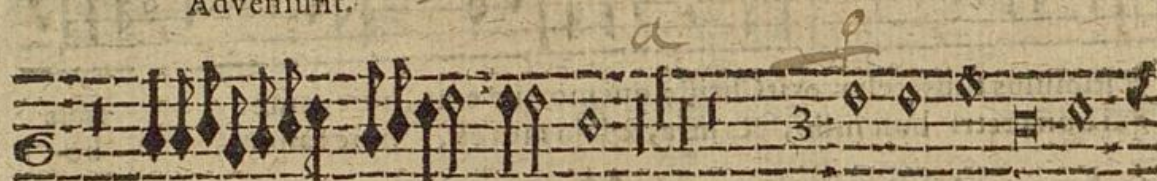 Adveniunt.
a
3